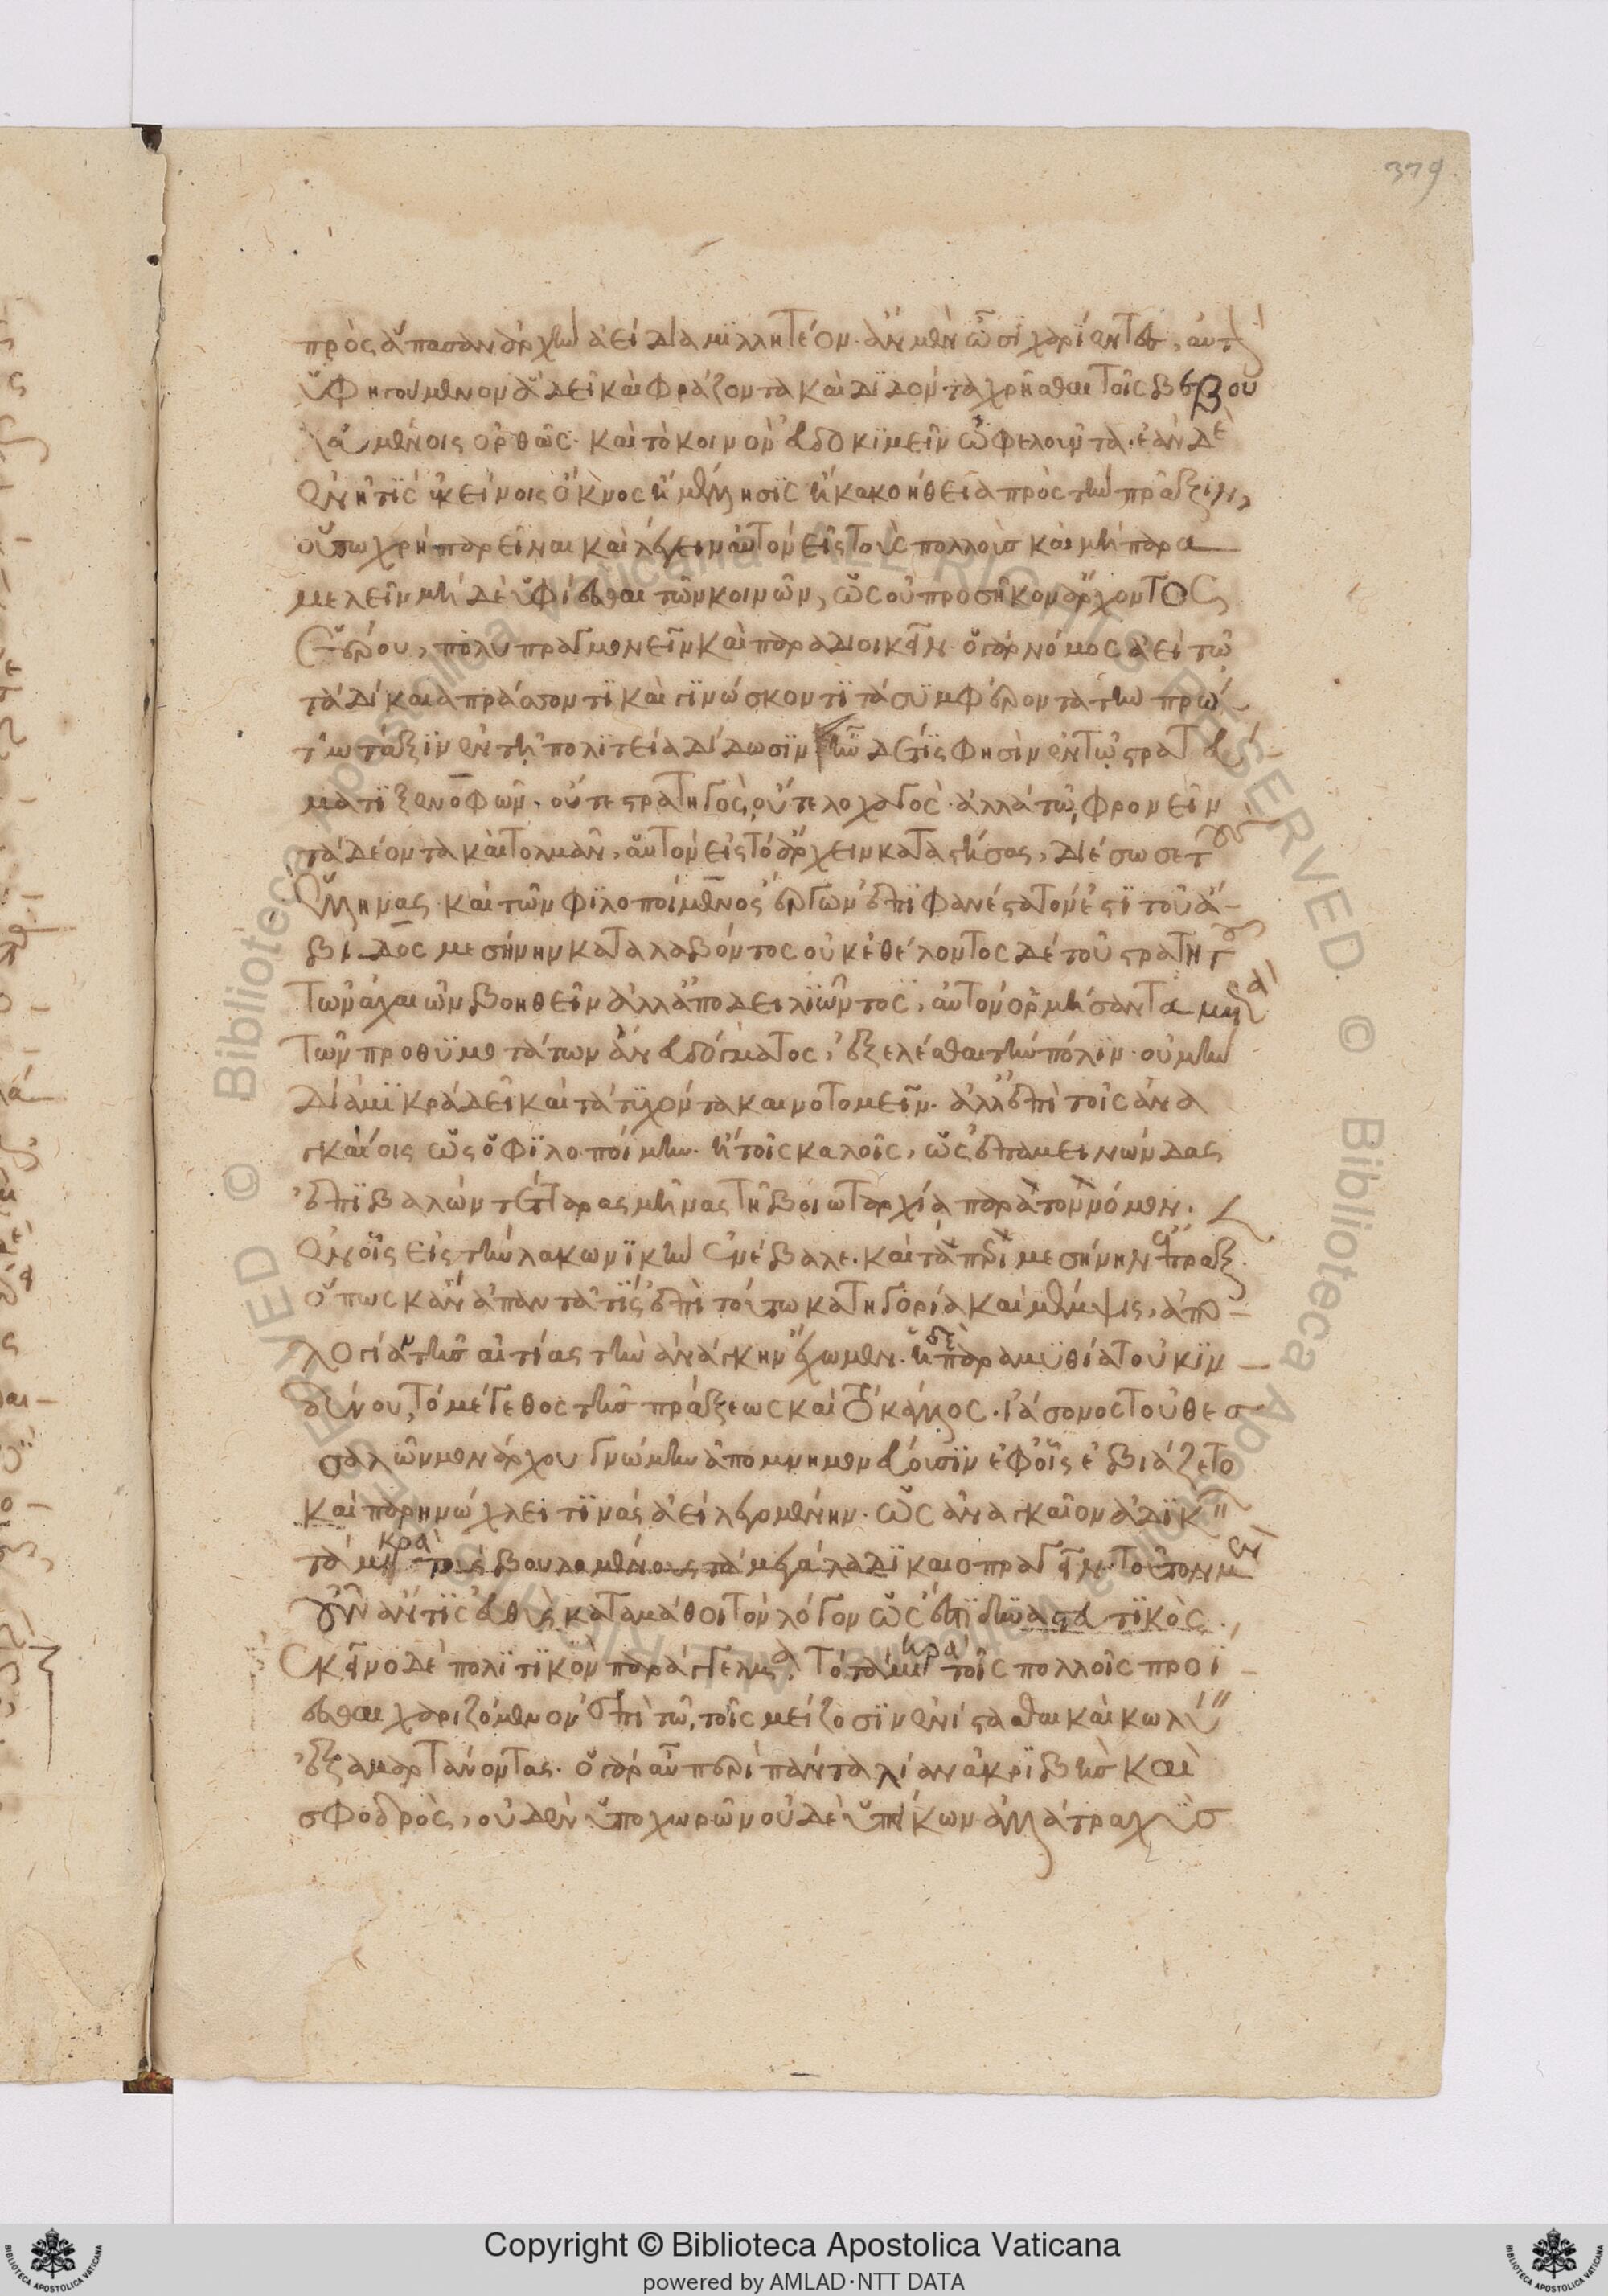 379
πρὸς ἅπασαν ἀρχὴν ἀεὶ διαμιλλητέον. ἂν μὲν ὦσι χαρίεντες, αὐτ
ὑφηγούμενον ἃ δεῖ καὶ φράζοντα καὶ διδόντα χρῆσθαι τοῖς βεβου
λευμένοις ὀρθῶς. καὶ τὸ κοινὸν εὐδοκιμεῖν ὠφελοῦντα. ἐὰν δὲ
ἐνῆ τίς ἐκείνοις ὄκνος ἢ μέλλησις ἢ κακοήθεια πρὸς τὴν πρᾶξιν,
οὕτω χρὴ παρεῖναι καὶ λέγειν αὐτὸν εἰς τοὺς πολλοὺς καὶ μὴ παρα
μελεῖν μὴ δὲ ὑφίεσθαι τῶν κοινῶν, ὡς οὐ προσῆκον ἄρχοντος
ἑτέρου, πολυπραγμονεῖν καὶ παραδιοικεῖν. ὁ γὰρ νόμος ἀεὶ τῶ
τὰ δίκαια πράσσοντι καὶ γινώσκοντι τὰ συμφέροντα τὴν πρώ
την τάξιν ἐν τῆ πολιτεία δίδωσιν ἦν δέ τις φησὶν ἐν τῶ στρατεύ
ματι ξενοφῶν. οὔτε στρατηγὸς, οὔτε λοχαγὸς. ἀλλὰ τῶ, φρονεῖν
τὰ δέοντα καὶ τολμᾶν, αὑτὸν εἰς τὸ ἄρχειν καταστήσας, διέσωσε τ
ἕλληνας. καὶ τῶν φιλοποίμενος ἔργων ἐπιφανέστατον ἐστι τοῦ ἄ
βιδος μεσήνην καταλαβόντος οὐκ ἐθέλοντος δὲ τοῦ στρατηγ
τῶν ἀχαιῶν βοηθεῖν ἀλλ' ἀποδειλιῶντος, αὐτὸν ὁρμήσαντα με
τῶν προθυμοτάτων ἄνευ δόγματος, ἐξελέσθαι τὴν πόλιν. οὐ μὴν
διὰ μικρὰ δεῖ καὶ τὰ τυχόντα καινοτομεῖν. ἀλλ' ἐπὶ τοῖς ἀνα
γκαίοις ὡς ὁ φιλοποίμην. ἢ τοῖς καλοῖς, ὡς ἐπαμεινώνδας
ἐπιβαλὼν τέτταρας μῆνας τῆ βοιωταρχία παρὰ τὸν νόμον.
ἐν οἷς εἰς τὴν λακωνικὴν ἐνέβαλε. καὶ τὰ περὶ μεσήνην ἔπραξ
ὅπως κἂν ἀπαντᾶ τίς ἐπὶ τούτω κατηγορία καὶ μέμψις, ἀπο
λογία τῆς αἰτίας τὴν ἀνάγκην ἔχωμεν. ἢ παραμυθία τοῦ κιν
δύνου, τὸ μέγεθος τῆς πράξεως καὶ τὸ κάλλος. ἰάσονος τοῦ θεσ
σαλῶν μονάρχου γνώμην ἀπομνημονεύουσιν ἐφ' οἷς ἐβιάζετο
καὶ παρηνώχλει τινὰς ἀεὶ λεγομένην. ὡς ἀναγκαῖον ἀδικ
τὰ μικρὰ τοὺς βουλομένους τὰ μεγάλα δικαιοπραγεῖν. τοῦτον μὲν
οὖν ἄν τις εὐθὺς καταμάθοι τὸν λόγον ὡς ἐστὶ δυναστευτικὸς.
ἐκεῖνο δὲ πολιτικὸν παράγγελμα. τὸ τὰ μικρὰ τοῖς πολλοῖς προΐ
εσθαι χαριζόμενον ἐπὶ τῶ, τοῖς μείζοσιν ἐνίστασθαι καὶ κωλύ
ἐξαμαρτάνοντας. ὁ γὰρ αὖ περὶ πάντα λίαν ἀκριβὴς καὶ
σφοδρὸς, οὐδὲν ὑποχωρῶν οὐδὲ ὑπείκων ἀλλὰ τραχὺς
© Biblioteca Apostolica Vaticana ALL RIGHTS RESERVED © Biblioteca Apostolica Vaticana ALL RIGHTS RESERVED
Copyright © Biblioteca Apostolica Vaticana
powered by AMLAD·NTT DATA
BIBLIOTECA APOSTOLICA VATICANA
BIBLIOTECA APOSTOLICA VATICANA